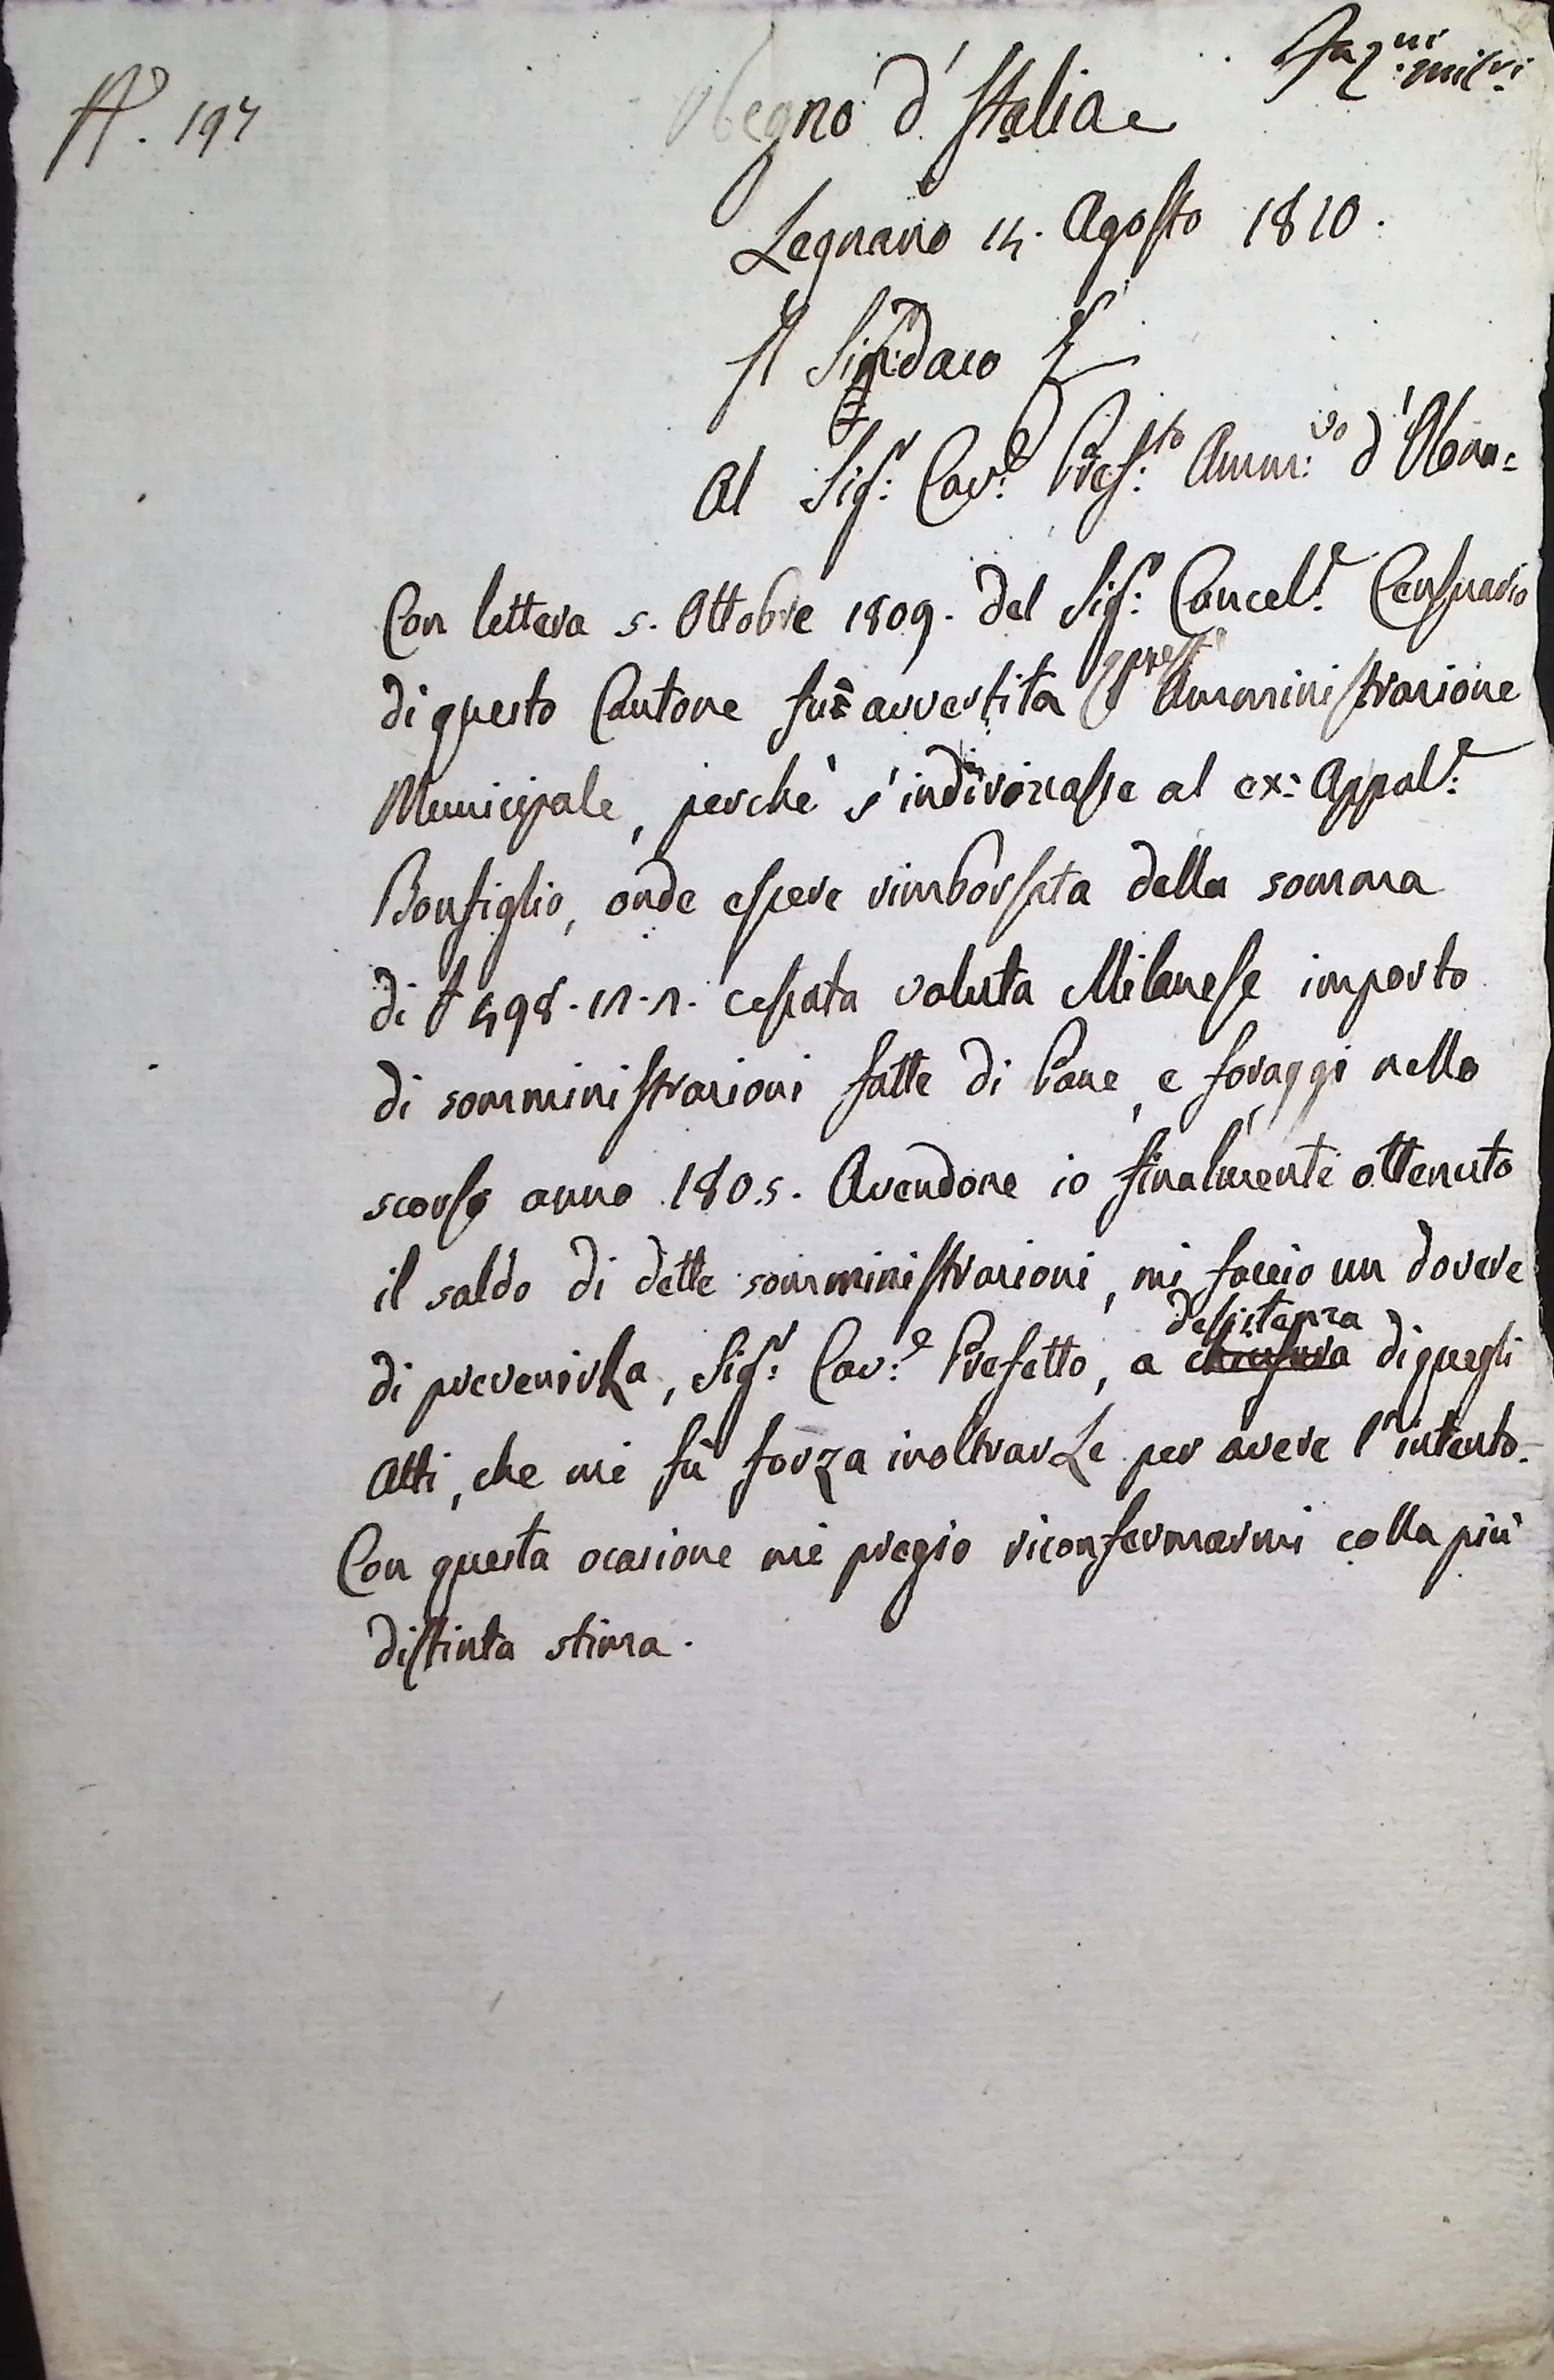 N.° 197
Regno d'Italia
Legnano 14. Agosto 1810.
Il Sindaco
Al Sig.r Cav.e Pref.to Amm.vo d'Olona
Con lettera 5. Ottobre 1809. del Sig.r Cancel.e Censuario
di questo Cantone fu avvertita Amministrazione
Municipale, perchè s'indirizzasse al ex: Appal.e
Bonfiglio, onde essere rimborsata della somma
di 498. cessata valuta Milanese importo
di somministrazioni fatte di Pane, e foraggi nello
scorso anno 1805. Avendone io finalmente ottenuto
il saldo di dette somministrazioni, mi faccio un dovere
di prevenirLa, Sig.r Cav.e Prefetto, a desistenza di quegli
Atti, che mi fù forza inoltrarLe per avere l'intento.
Con questa ocasione mi pregio riconfermarmi colla più
distinta stima.